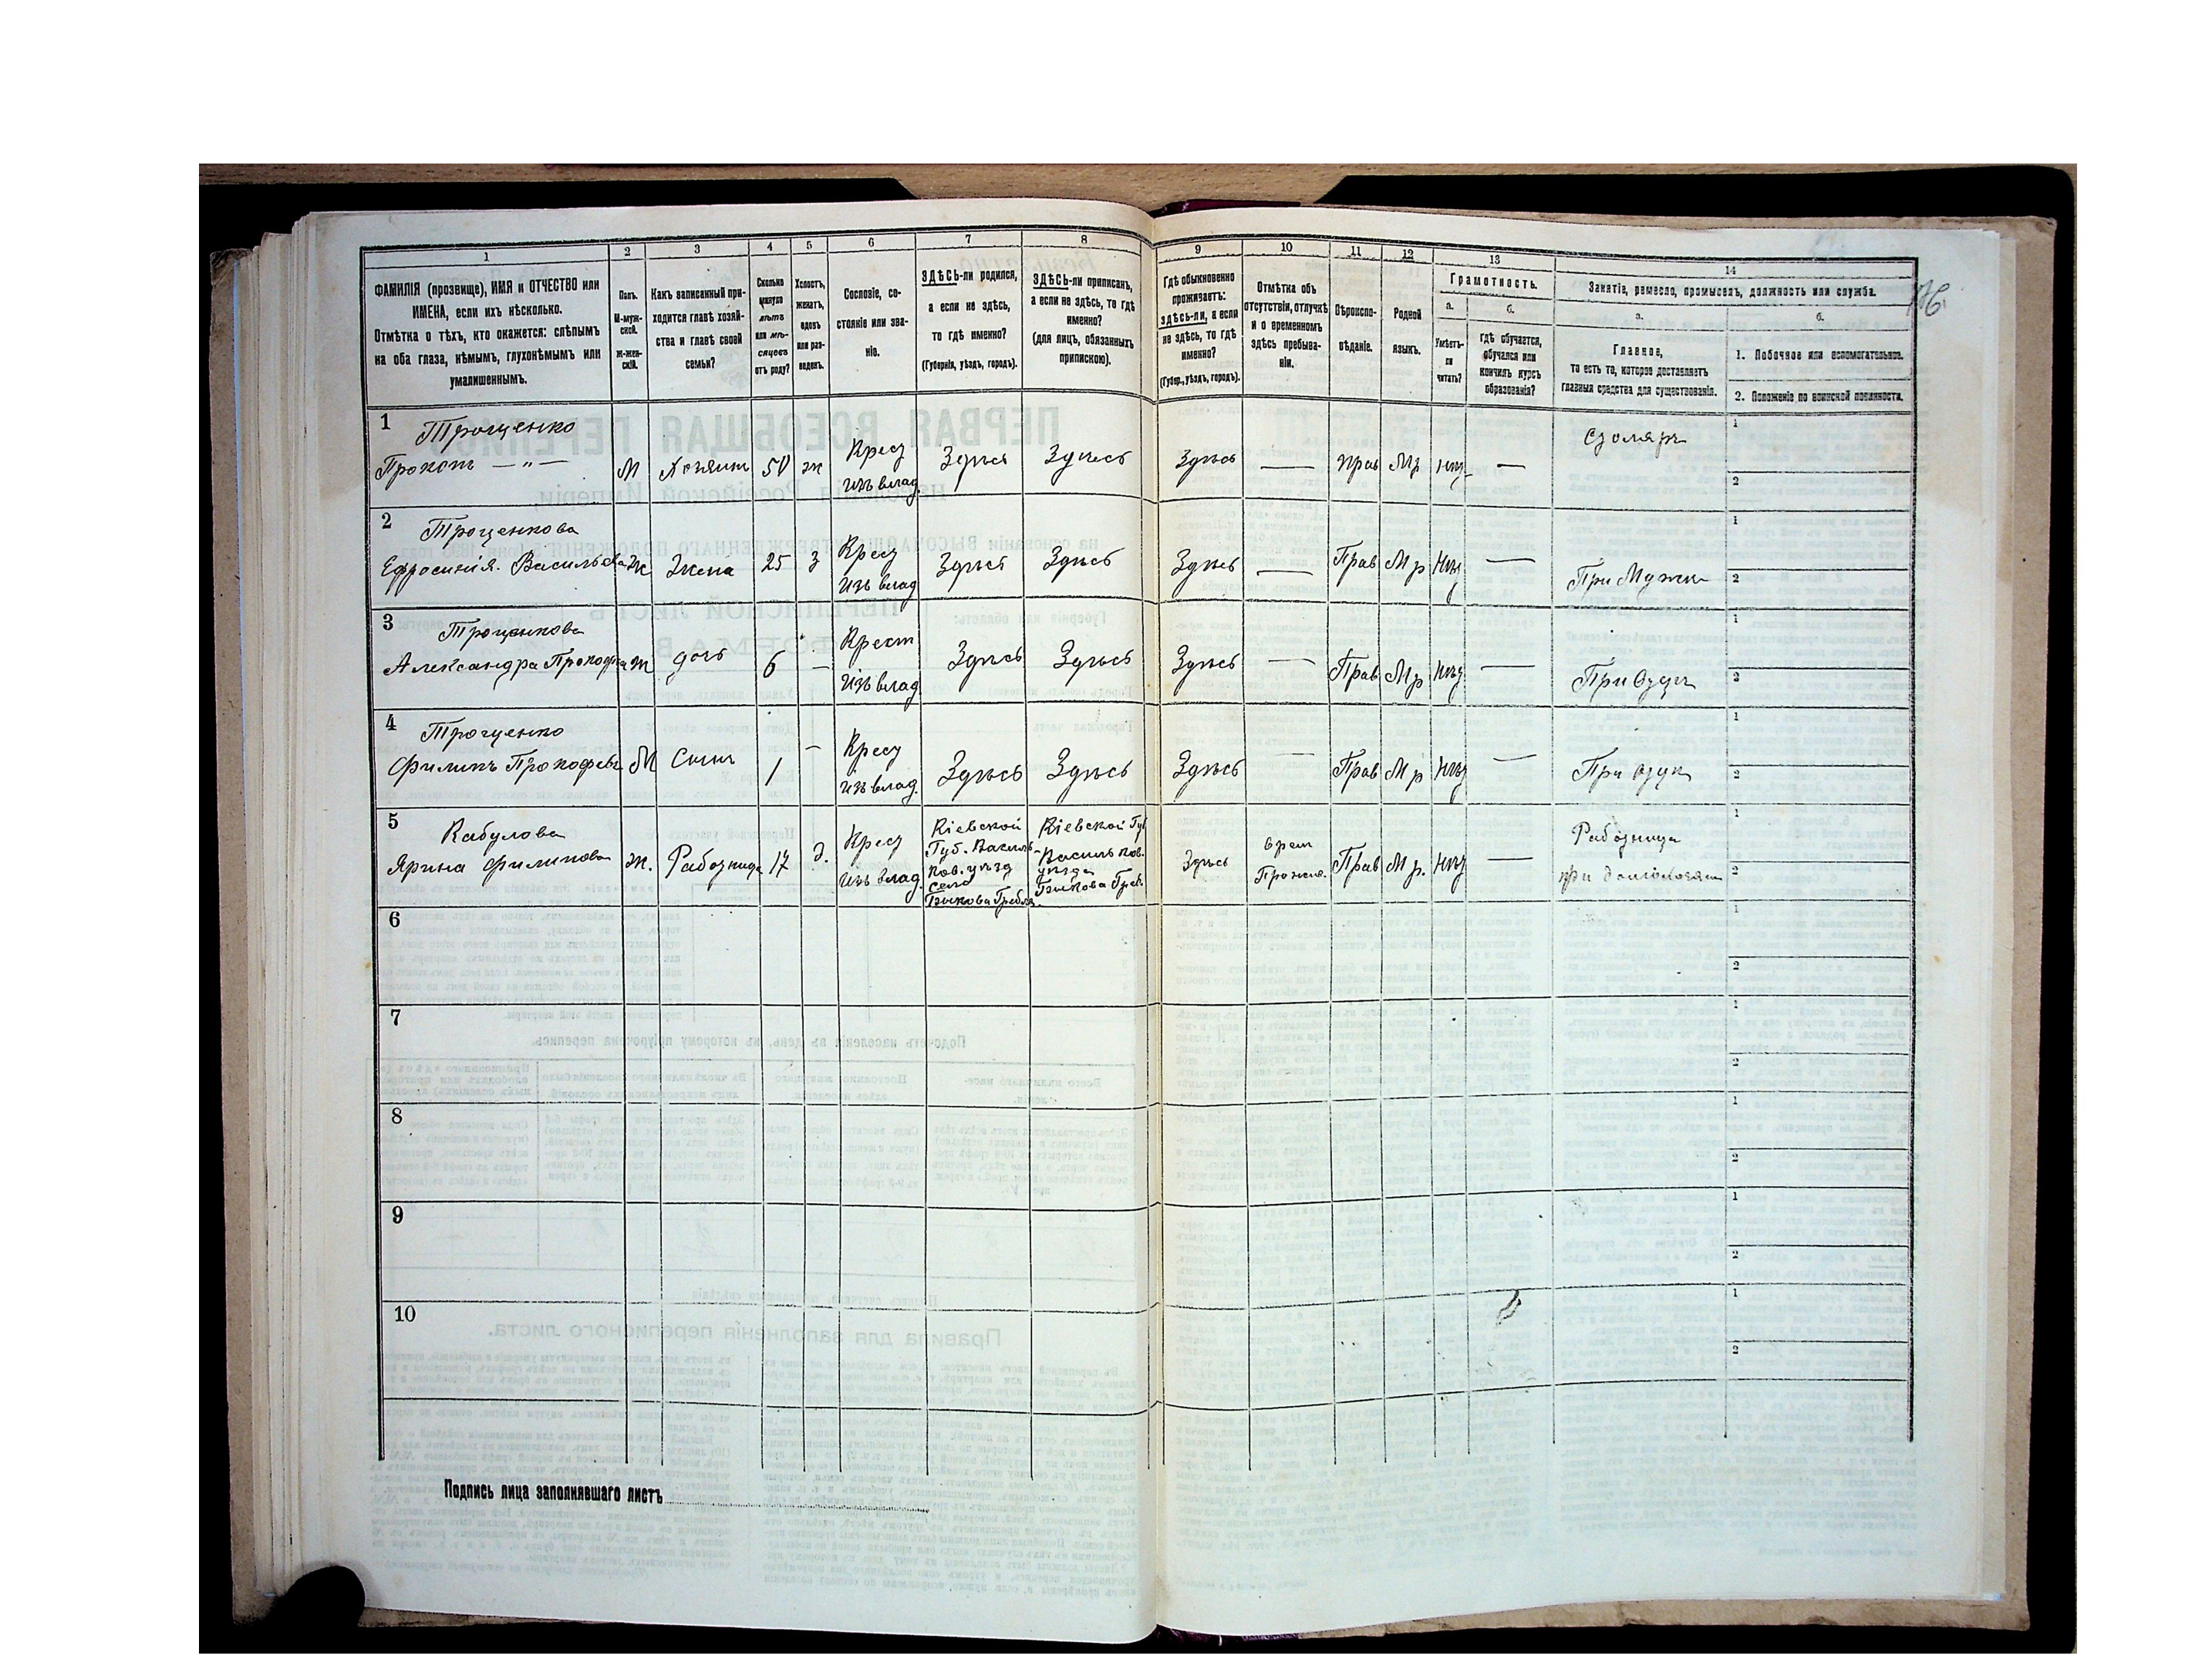 1
2
3
4
5
6
7
8
ФАМИЛІЯ (прозвище), ИМЯ и ОТЧЕСТВО или
ИМЕНА, если ихъ нѣсколько.
Отмѣтка о тѣхъ, кто окажется: слѣпымъ
на оба глаза, нѣмымъ, глухонѣмымъ или
умалишеннымъ.
Полъ.
М-муж-
ской.
Ж-жен-
скій.
Какъ записанный при-
ходится главѣ хозяй-
ства и главѣ своей
семьи?
Сколько
минуло
лѣтъ
или мѣ-
сяцевъ
отъ роду?
Холостъ,
женатъ,
вдовъ
или раз-
веденъ.
Сословіе, со-
стояніе или зва-
ніе.
ЗДѢСЬ-ли родился,
а если не здѣсь,
то гдѣ именно?
(Губернія, уѣздъ, городъ).
ЗДѢСЬ-ли приписанъ,
а если не здѣсь, то гдѣ
именно?
(для лицъ, обязанныхъ
припискою).
9
10
11
12
13
14
Гдѣ обыкновенно
проживаетъ:
здѣсь-ли, а если
не здѣсь, то гдѣ
именно?
(Губер., уѣздъ, городъ).
Отмѣтка объ
отсутствіи, отлучкѣ
и о временномъ
здѣсь пребыва-
ніи.
Вѣроиспо-
вѣданіе.
Родной
языкъ.
Грамотность.
а.
Умѣетъ-
ли
читать?
б.
гдѣ обучается,
обучался или
кончилъ курсъ
образованія?
Занятіе, ремесло, промыселъ, должность или служба.
а.
Главное,
то есть то, которое доставляетъ
главныя средства для существованія.
б.
1. Побочное или вспомогательное.
2. Положеніе по воинской повинности.
1 Трощенко
Прокопъ — „ — М Хозяинъ 50 ж Крест изъ влад. Здѣсь Здѣсь Здѣсь — Прав Мр Нѣт — Столяръ
1
2
2 Троценкова
Ефросинія Васильева Ж Жена 25 з Крест изъ влад Здѣсь Здѣсь Здѣсь — Прав Мр Нѣт — При Мужѣ
1
2
3 Троценкова
Александра Прокофьева Ж дочь 6 — Крест изъ влад Здѣсь Здѣсь Здѣсь — Прав Мр Нѣт — При Отцѣ
1
2
4 Трощенко
Филипъ Прокофьевъ М Сынъ 1 — Крест изъ влад. Здѣсь Здѣсь Здѣсь — Прав Мр Нѣт — При отцѣ
1
2
5 Кабулова
Ярина Филипова Ж. Работница 17 д. Крест изъ влад.
Кіевской
Губ. Василь-
ков. уѣзд
село
Быкова Гребля.
Кіевской Губ
Васильков.
уѣзда
Быкова Греб.
Здѣсь
врем
Прожив.
Прав Мр. Нѣт —
Работница
при домохозяин
1
2
6
1
2
7
1
2
8
1
2
9
1
2
10
1
2
Подпись лица заполнявшаго листъ